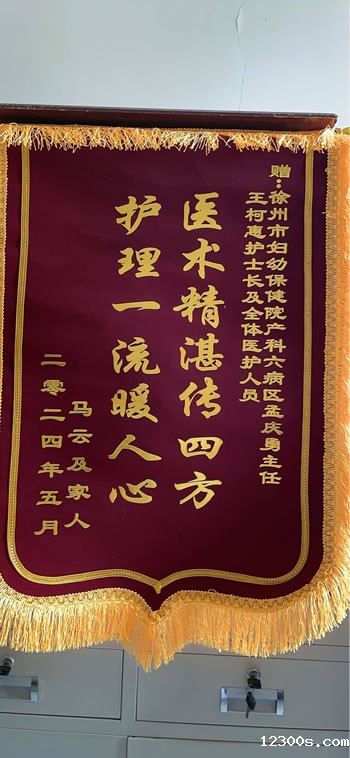 赠:徐州市妇幼保健院产科六病区孟庆勇主任
王柯惠护士长及全体医护人员
医术精湛传四方
护理一流暖人心
马云及家人
二零二四年五月
12300s.com